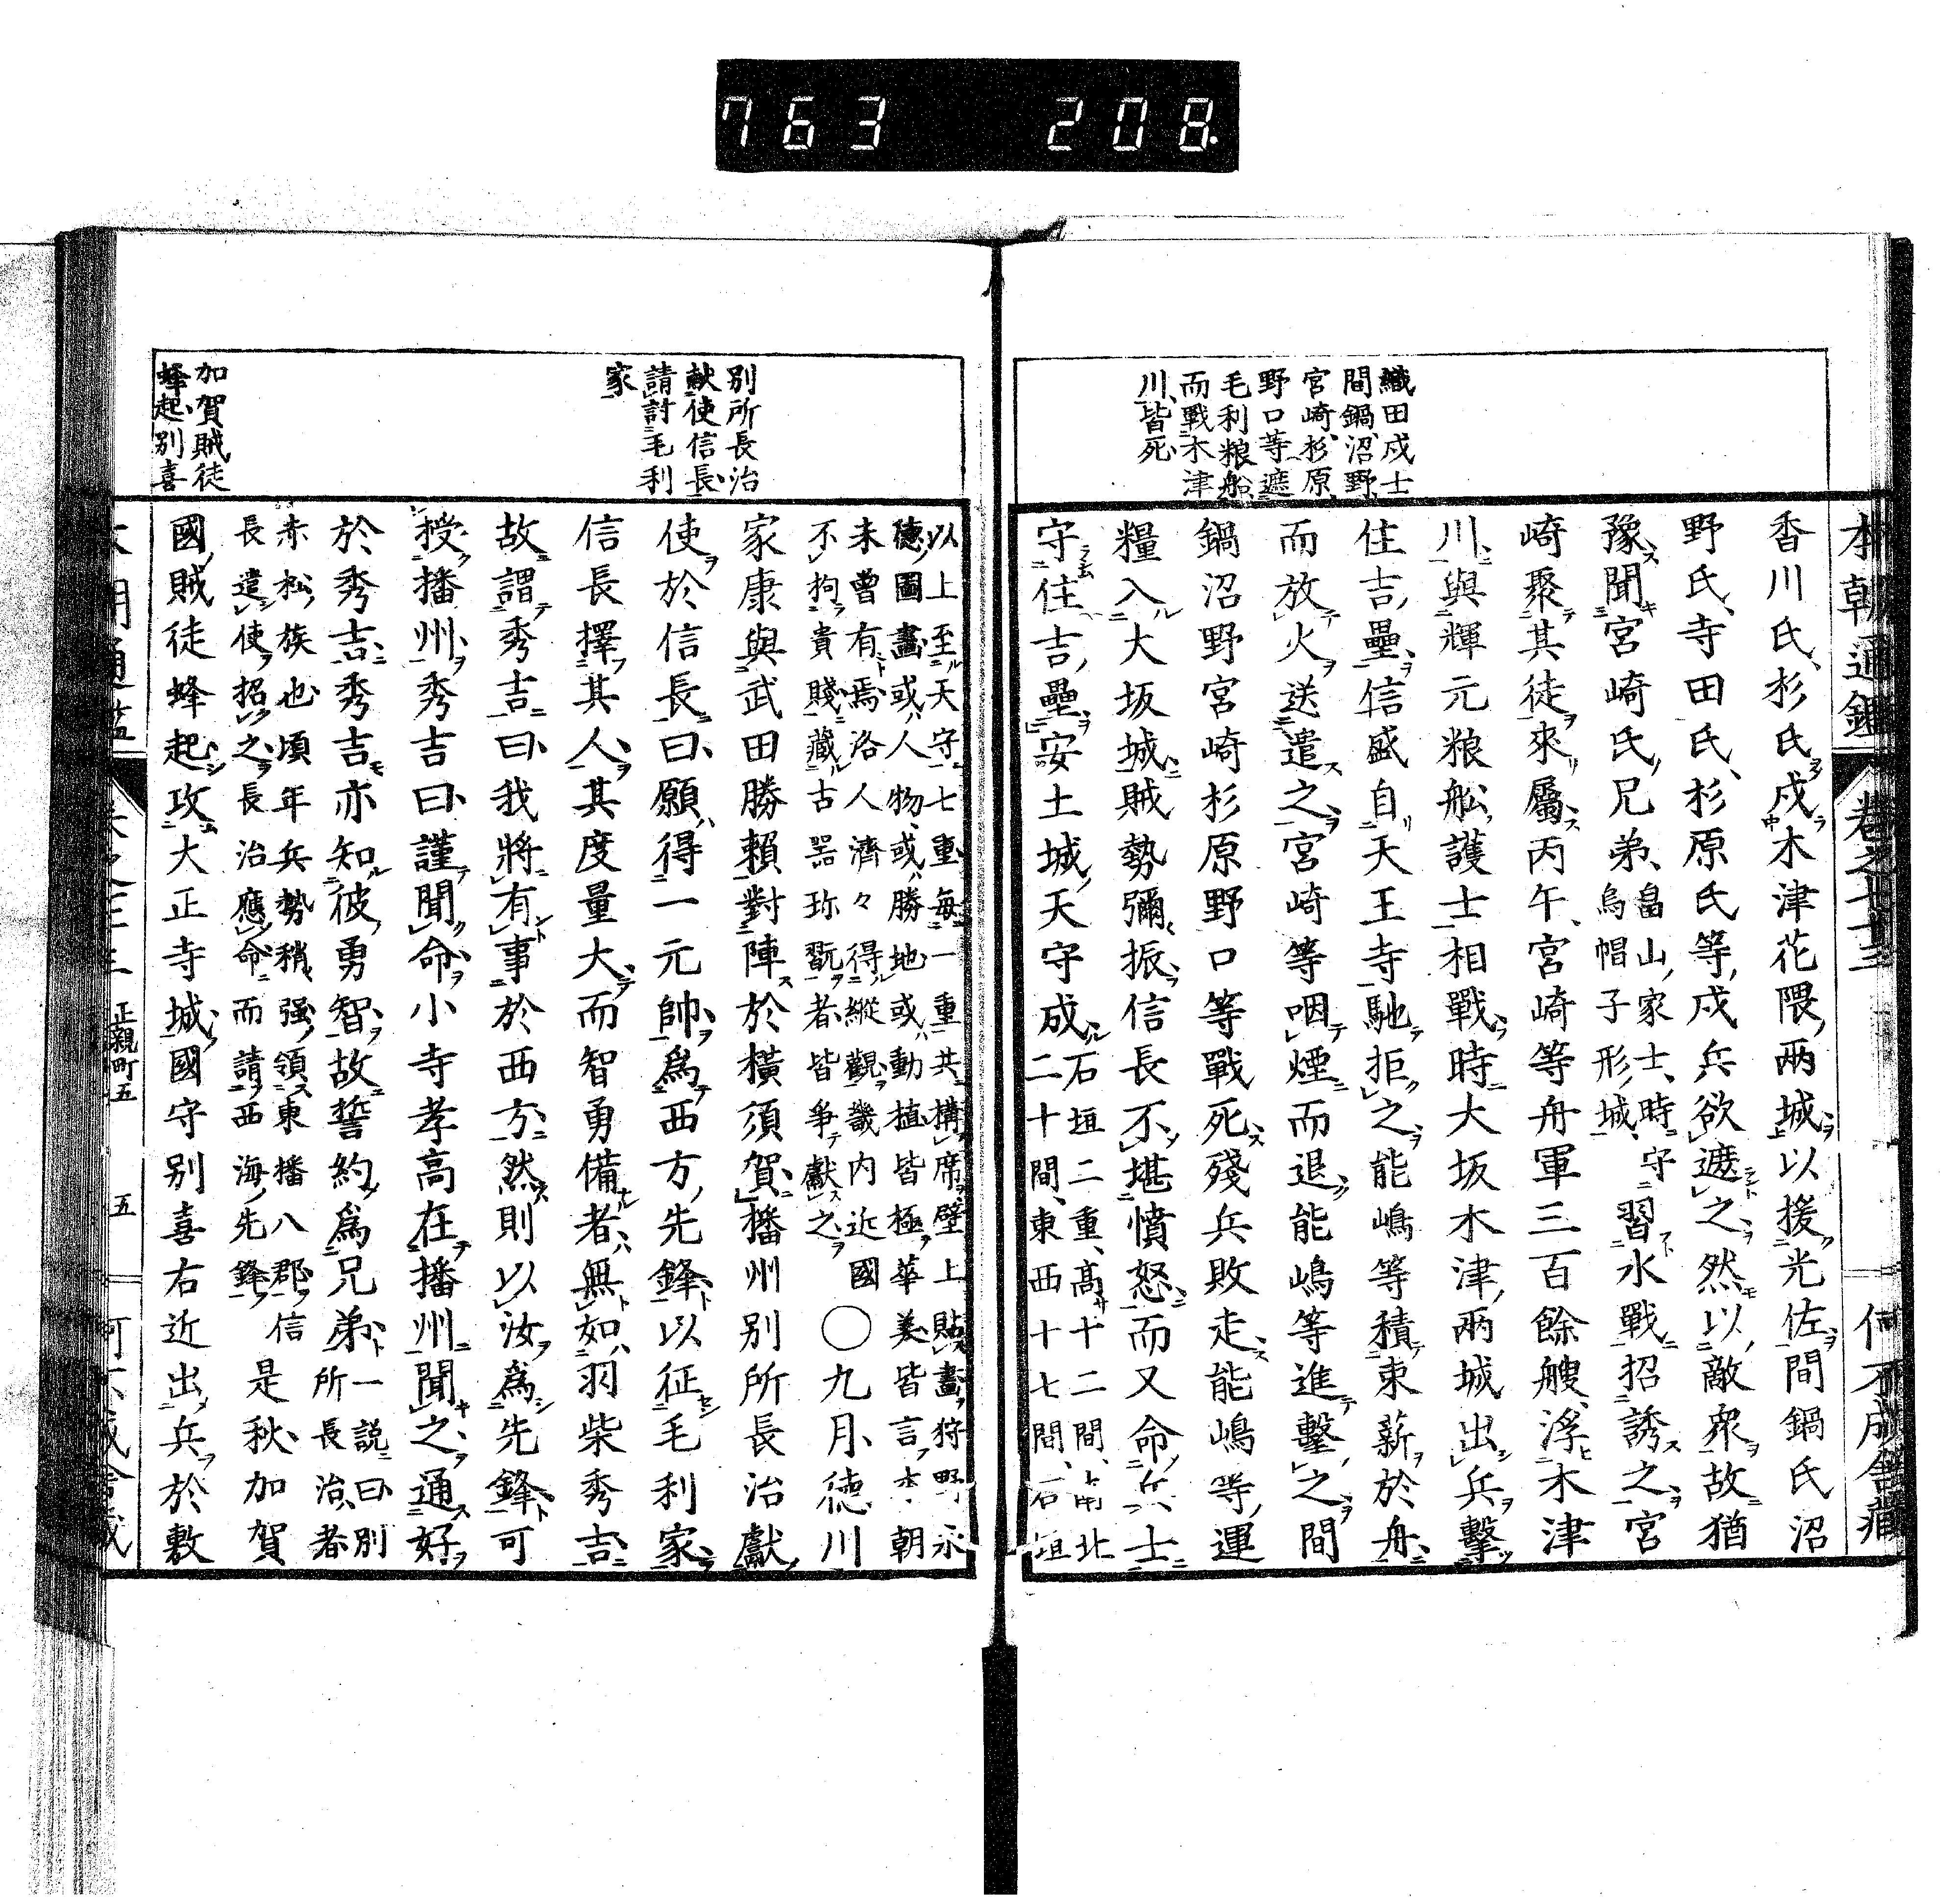 763 208
本朝通鑑 卷之七十三 何不成舍藏
織田戍士
間鍋沼野
宮崎杉原
野口等遮
毛利粮船
而戰木津
川皆死
香川氏杉氏戍木津花隈兩城以援光佐間鍋氏沼
野氏寺田氏杉原氏等戍兵欲遮之然以敵衆故猶
豫聞宮崎氏兄弟畠山家士時守烏帽子形城習水戰招誘之宮
崎聚其徒來屬丙午宮崎等舟軍三百餘艘浮木津
川與輝元粮舩護士相戰時大坂木津兩城出兵擊
住吉壘信盛自天王寺馳拒之能嶋等積東薪於舟
而放火送遣之宮崎等咽煙而退能嶋等進擊之間
鍋沼野宮崎杉原野口等戰死殘兵敗走能嶋等運
糧入大坂城賊勢彌振信長不堪憤怒而又命兵士
守住吉壘安土城天守成石垣二重高十二間南北二十間東西十七間石垣
別所長治
献使信長
請討毛利
家
加賀賊徒
蜂起別喜
以上至天守七重每一重共構席壁上貼畫狩野永
德圖畫或人物或勝地或動植皆極華美皆言本朝
未曾有焉洛人濟々得縱觀畿内近國
不拘貴賤藏古器珎翫者皆爭獻之〇九月德川
家康與武田勝賴對陣於橫須賀播州別所長治獻
使於信長曰願得一元帥爲西方先鋒以征毛利家
信長擇其人其度量大而智勇備者無如羽柴秀吉
故謂秀吉曰我將有事於西方然則以汝爲先鋒可
授播州秀吉曰謹聞命小寺孝高在播州聞之通好
於秀吉秀吉亦知彼勇智故誓約爲兄弟一說曰別所長治者
赤松族也頃年兵勢稍强領東播八郡信
長遣使招之長治應命而請西海先鋒是秋加賀
國賊徒蜂起攻大正寺城國守別喜右近出兵於敷
正親町五 五